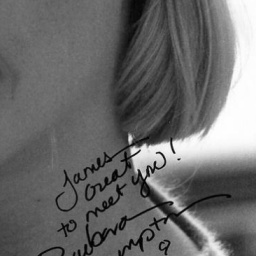 James
Great
to meet you!
Barbara